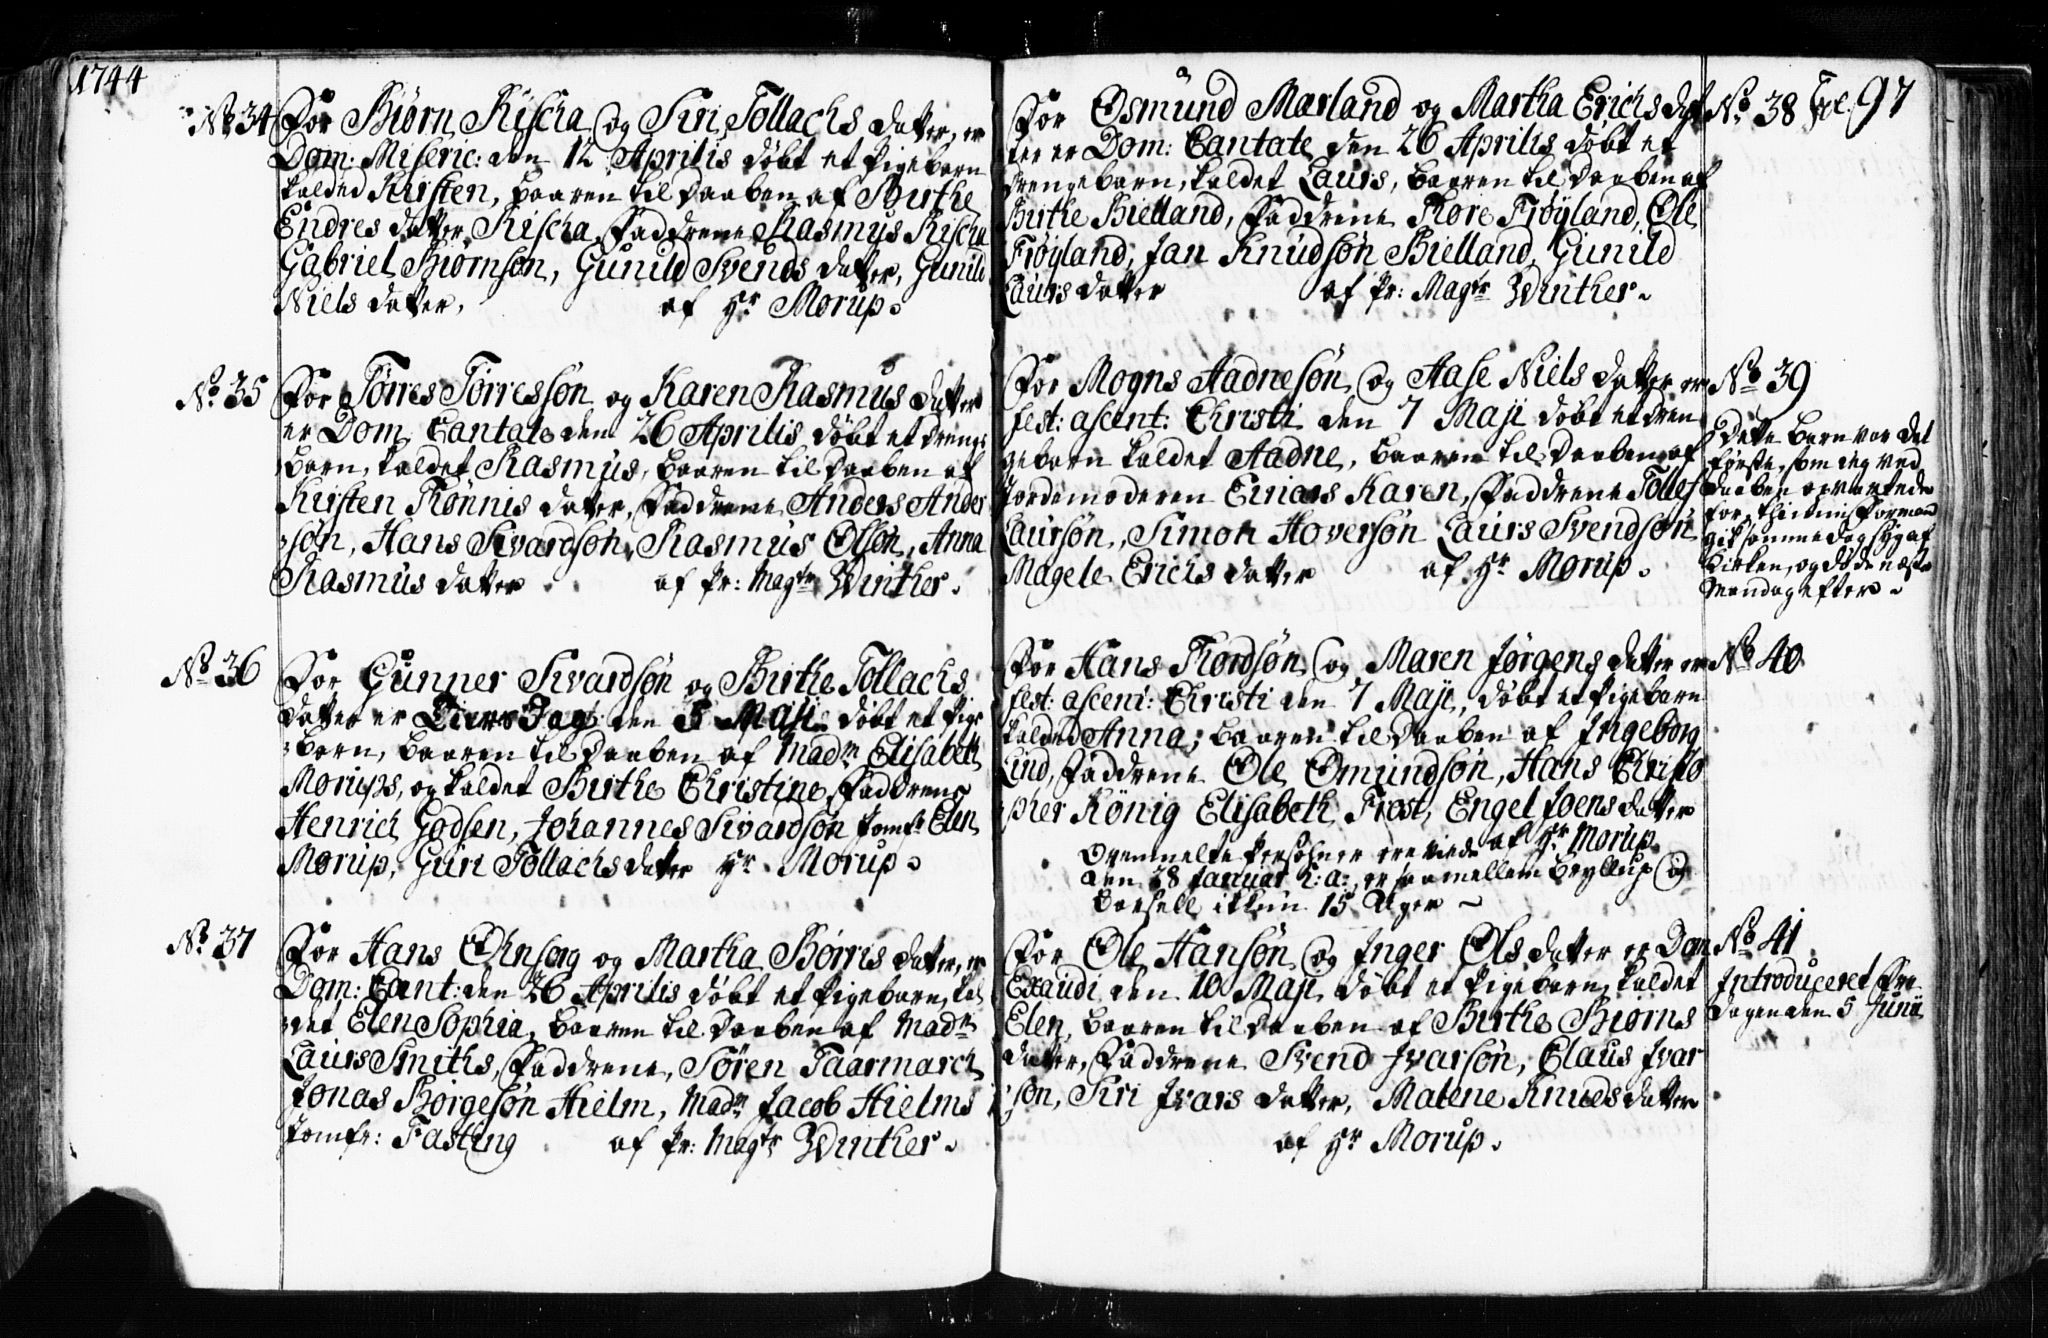 1744
No 34 For Biørn Risha og Siri Tollachs datter, er
Dom: Miseric: den 12 Aprilis døbt et Pigebarn
kalded Kirsten, baaren til Daaben af Birthe
Endres datter Rischa, Faddrene Rasmus Rischa
Gabriel Biørnsøn, Gunild Svends datter, Gunild
Niels datter, af Hr Morup.
No 35 For Tørres Tørressøn og Karen Rasmus datter
er Dom Cantate den 26 Aprilis døbt et drenge
barn, kaldet Rasmus, baaren til Daaben af
Kirsten Tønnis datter, Faddrene Anders Ander
søn, Hans Sivardsøn, Rasmus Olsøn, Anna
Rasmus datter af Pr: Magtr Winther.
No 36 For Gunner Sivardsøn og Birthe Tollachs
datter er Tiers Dag den 5 Maji døbt et Pige
barn, baaren til Daaben af Madm Elisabeth
Morups, og kaldet Birthe Christine, Faddrene
Henrich Godsen, Johannes Sivardsøn Jomfr Elen
Morup, Guri Tollachs datter Hr Morup.
No 37 For Hans Ohnsorg og Martha Børris datter, er
Dom: Cant: den 26 Aprilis døbt et Pigebarn, kal
det Elen Sophia, baaren til Daaben af Madm
Laurs Smiths, Faddrene, Søren Faarmarch
Jonas Børgesøn Hielm, Madm Jacob Hielms
Jomfr: Fasting af Pr: Magtr Winther.
For Osmund Marland og Martha Erichs dat No 38 Fol 97
ter er Dom: Cantate den 26 Aprilis døbt et
drengebarn, kaldet Laurs, baaren til Daaben af
Birthe Bielland, Faddrene Tore Frøyland, Ole
Frøyland, Jan Knudsøn Bielland, Gunild
Laurs datter af Pr: Magtr Winther.
For Mogns Aadnesøn og Aase Niels datter er No 39
fest: ascent: Christi den 7 Maji døbt et dren
gebarn kaldet Aadne, baaren til Daaben af
Jordemoderen Einars Karen, Faddrene Tollef
Laursøn, Simon Hoversøn Laurs Svendsøn
Magele Erichs datter af Hr Morup.
Dette barn var det
første, som jeg ved
Daaben opvartede
for, thi min Formand
gik samme dag syg af
Kirken, og døde næste
Mandag efter.
For Hans Tordsøn og Maren Jørgens datter er No 40
fest: ascent: Christi den 7 Maji, døbt et Pigebarn
kalded Anna, baaren til Daaben af Ingeborg
Lind, Faddrene Ole Omundsøn, Hans Christo
pher König Elisabeth Frost, Engel Joens datter
af Hr Morup
Ovenmelte Persohner ere viede
den 28 Januar h: a:, er saa mellem Bryllup og
Barsell ikkun 15 Uger
For Ole Hansøn og Inger Ols datter er Dom No 41
Exaudi den 10 Maji døbt et Pigebarn, kaldet
Elen, baaren til Daaben af Birthe Biørns
datter, Faddrene Svend Ivarsøn, Claus Ivar
søn, Siri Ivars datter, Malene Knuds datter
af Hr Morup.
Introduceret Fre
dagen den 5 Junii